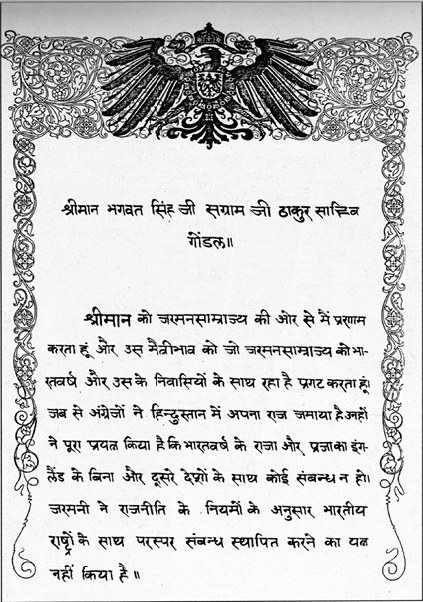 श्रीमान भगवत सिंह जी सग्राम जी ठाकुर साहिब
गोंडल॥
श्रीमान को जरमनसाम्राज्य की ओर से मैं प्रणाम
करता हूं और उस मैत्रीभाव को जो जरमनसाम्राज्य को भा-
रतवर्ष और उस के निवासियों के साथ रहा है प्रगट करता हूं।
जब से अंग्रेजों ने हिन्दुस्तान में अपना राज जमाया है उन्हों
ने पूरा प्रयत्न किया है कि भारतवर्ष के राजा और प्रजा का इंग-
लैंड के बिना और दूसरे देशों के साथ कोई संबन्ध न हो।
जरमनी ने राजनीति के नियमों के अनुसार भारतीय
राष्ट्रों के साथ परस्पर संबन्ध स्थापित करने का यत्न
नहीं किया है॥